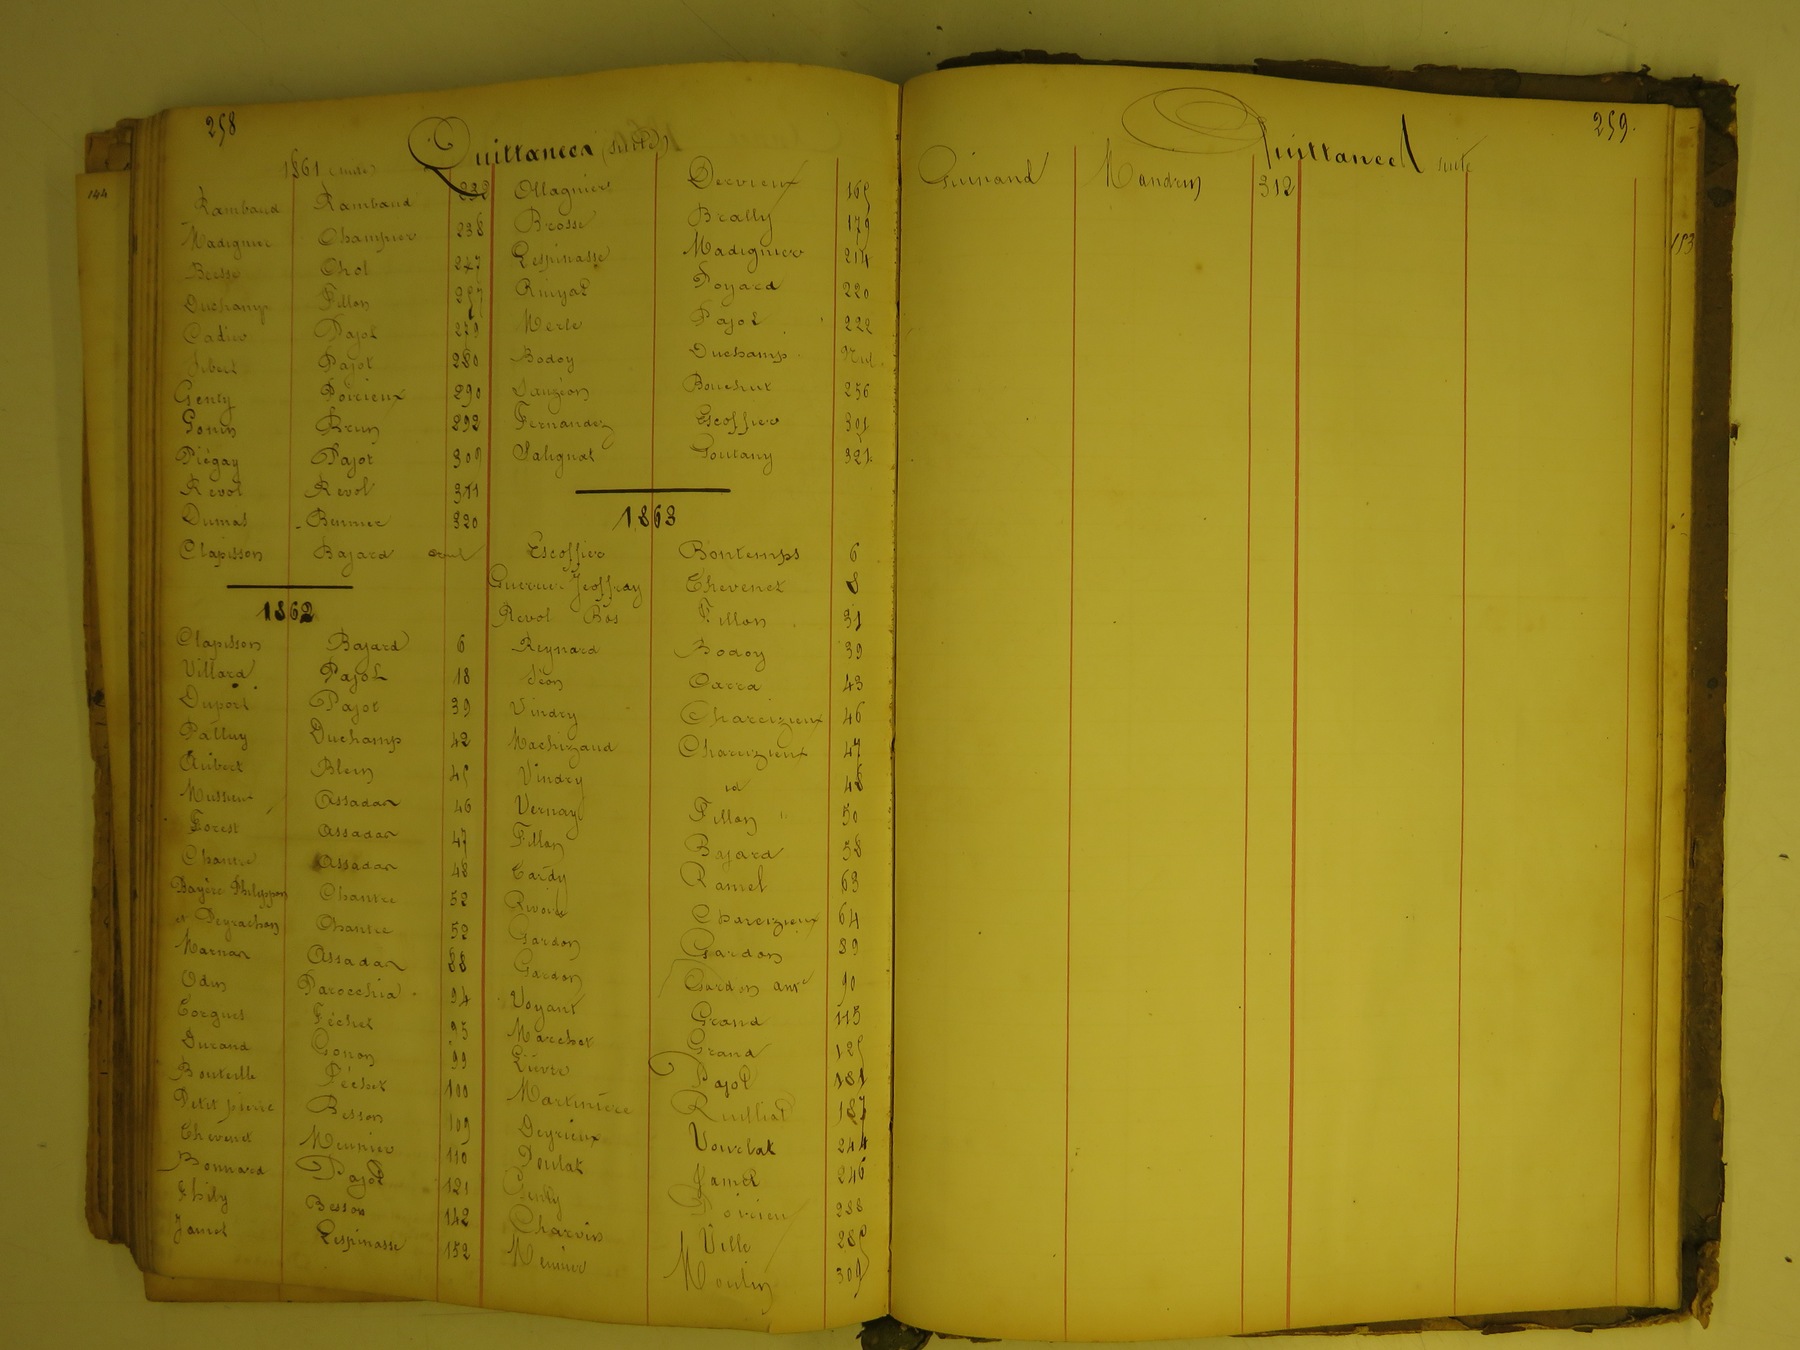 258
Quittances (suite)
1861 (suite)
Rambaud Rambaud 232
Madignier Champier 238
Besse Chol 247
Duchamp Fillon 257
Cadier Pajot 279
Pajot 280
Genty Poirieux 290
Gonin Brun 292
Piégay Pajot 309
Revol Revol 311
Dumas Beunier 320
Clapisson Bajard
1862
Clapisson Bajard 6
Villard Pajot 18
Duport Pajot 39
Palluy Duchamp 42
Aubert Blein 45
Assadan 46
Forest Assadan 47
Chantre Assadan 48
Bayère Philippon Chantre 52
et Peyrachon Chantre 52
Marnas Assadan 88
Odin Parocchia 94
Torgues Péchet 95
Durand Gonon 99
Bouteille Péchet 100
Petit pierre Besson 109
Thevenet Meunier 110
Bonnard Pajot 121
Phily Besson 142
Jamet Lespinasse 152
Ollagnier Dervieux 165
Brosse Brally 179
Lespinasse Madignier 214
Ruyat Poyard 220
Merle Pajot 222
Bodoy Duchamp Nul
Sauzéon Bouchut 256
Fernandez Escoffier 301
Salignat Goutany 321
1863
Escoffier Bontemps 6
Guerrier Jeoffray Thevenet 8
Revol Bos Fillon 31
Reynard Bodoy 39
Séon Carra 43
Vindry Chareizieux 46
Machizaud Chareizieux 47
Vindry id 48
Vernay Fillon 50
Fillon Bajard 58
Tardy Ramel 63
Rivoire Chareizieux 64
Gardon Gardon 89
Gardon Gardon ant 90
Voyant Grand 115
Marchet Grand 125
Lièvre Pajot 181
Martinière Rulliat 187
Deyrieux Vourlat 244
Poulat Jamet 246
Genty Poirieu 288
Charvin Ville 289
Meunier Moulin 309
144
259.
Quittances suite
Guinand Mandrin 312
153